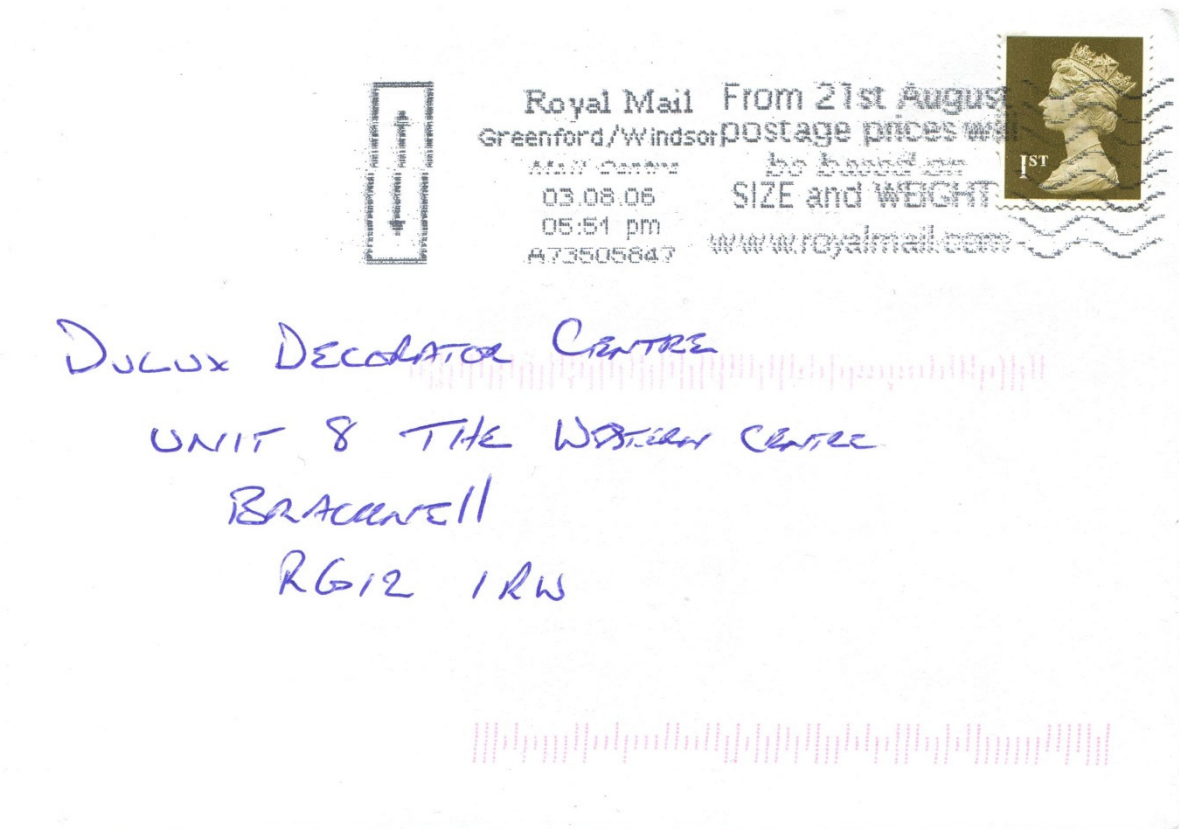 Royal Mail
Greenford/Windsor
Mail Centre
03.08.06
05:51 pm
A73505847
From 21st August
postage prices will
be based on
SIZE and WEIGHT
www.royalmail.com
1ST
DULUX DECORATOR CENTRE
UNIT 8 THE WESTERN CENTRE
BRACKNEll
RG12 1RW